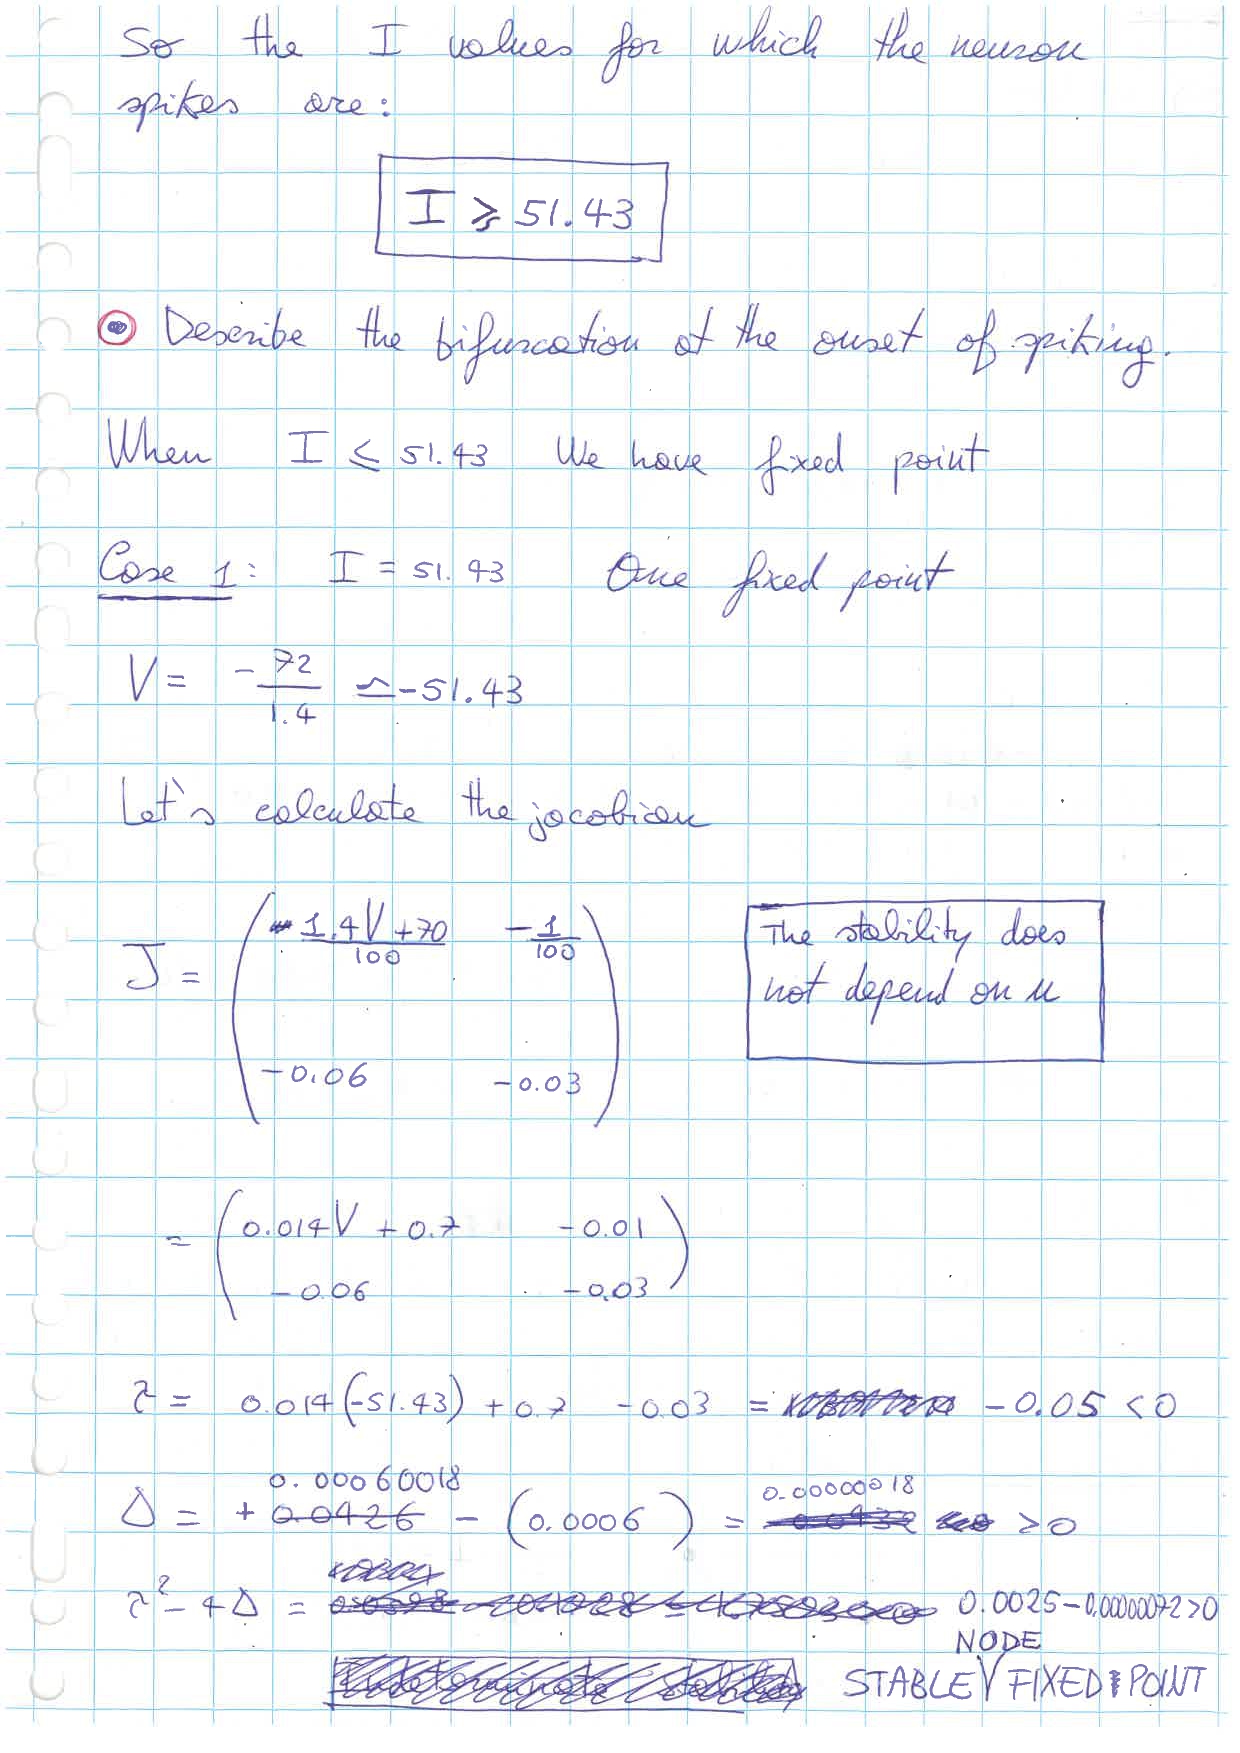 So the I values for which the neuron
spikes are:
I ⩾ 51.43
Describe the bifurcation at the onset of spiking.
When I ⩽ 51.43 We have fixed point
Case 1: I = 51.43 One fixed point
V = -72/1.4 ≃ -51.43
Let's calculate the jacobian
J = ( (1.4V+70)/100   -1/100
-0.06   -0.03 )
The stability does
not depend on u
= ( 0.014V + 0.7   -0.01
-0.06   -0.03 )
τ = 0.014(-51.43) + 0.7 - 0.03 = -0.05 < 0
0.00060018   0.00000018
Δ = + 0.0426 - (0.0006) = > 0
τ² - 4Δ = 0.0025 - 0.00000072 > 0
NODE
STABLE FIXED POINT